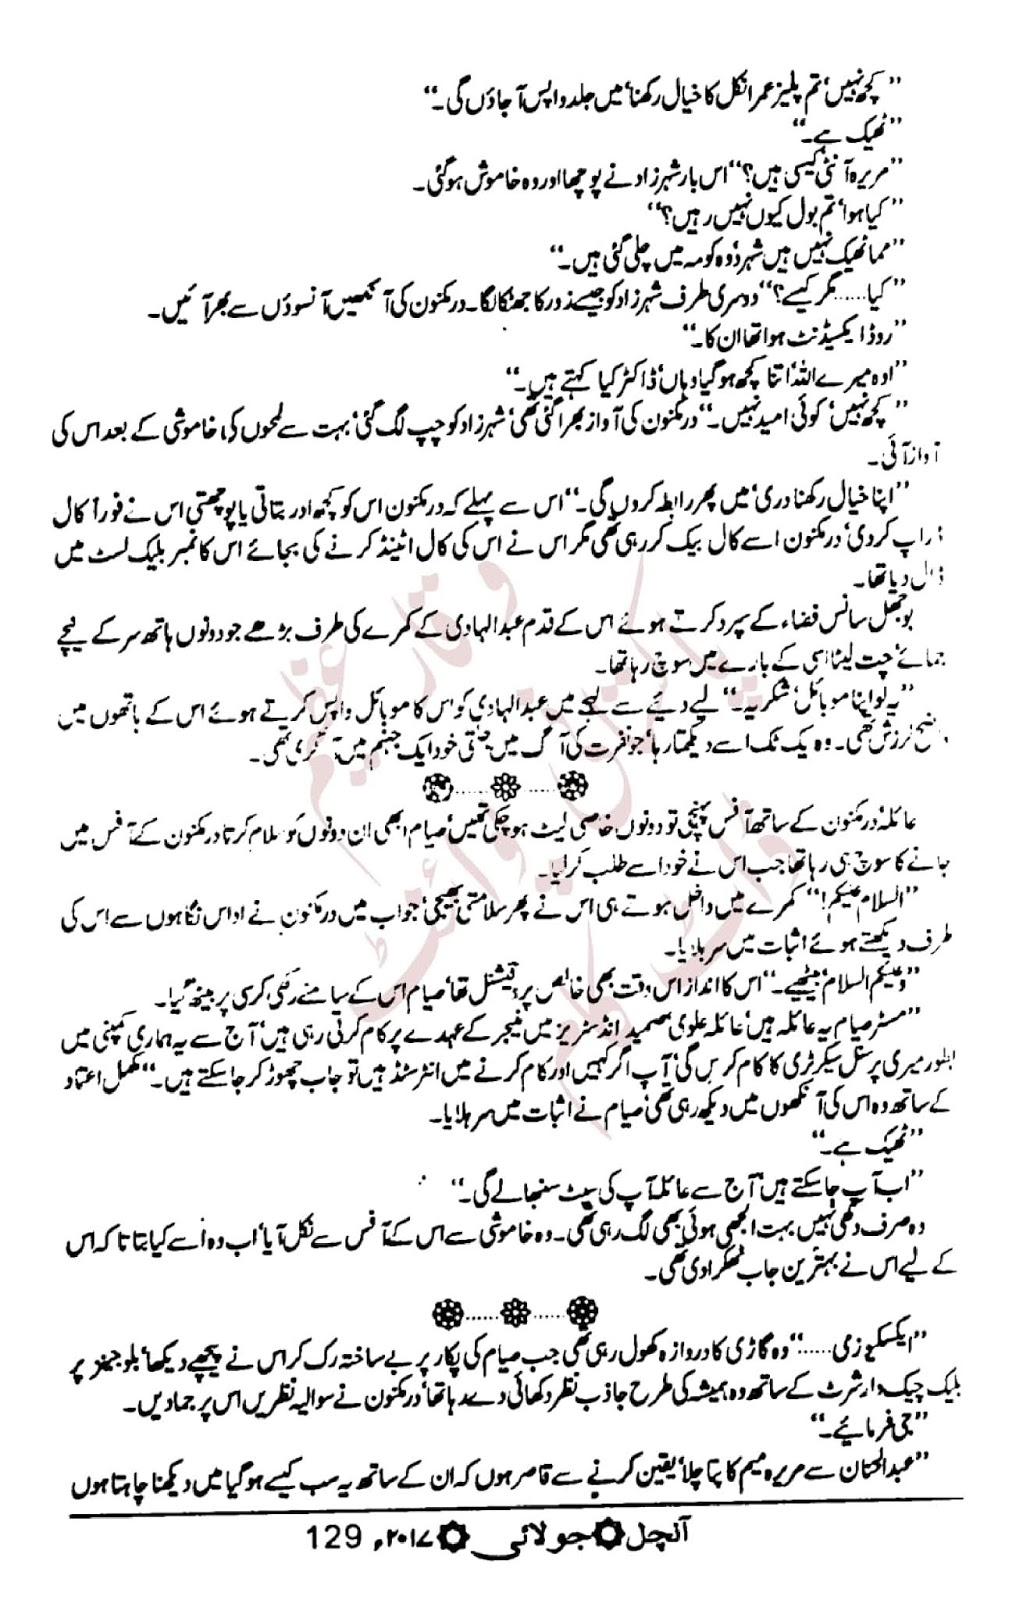 ’’کچھ نہیں‘ تم پلیز عمر انکل کا خیال رکھنا‘ میں جلد واپس آ جاؤں گی۔‘‘
’’ٹھیک ہے۔‘‘
’’مریرہ آنٹی کیسی ہیں؟‘‘ اس بار شہرزاد نے پوچھا اور وہ خاموش ہوگئی۔
’’کیا ہوا‘ تم بول کیوں نہیں رہیں؟‘‘
’’مما ٹھیک نہیں ہیں شہرزاد‘ وہ کومہ میں چلی گئی ہیں۔‘‘
’’کیا...... مگر کیسے؟‘‘ دوسری طرف شہرزاد کو جیسے زور کا جھٹکا لگا۔ درمکنون کی آنکھیں آنسوؤں سے بھر آئیں۔
’’روڈ ایکسیڈنٹ ہوا تھا ان کا۔‘‘
’’اوہ میرے اللہ‘ اتنا کچھ ہوگیا وہاں‘ ڈاکٹر کیا کہتے ہیں۔‘‘
’’کچھ نہیں‘ کوئی امید نہیں۔‘‘ درمکنون کی آواز بھرا گئی تھی‘ شہرزاد کو چپ لگ گئی‘ بہت سے لمحوں کی خاموشی کے بعد اس کی
آواز آئی۔
’’اپنا خیال رکھنا دری‘ میں پھر رابطہ کروں گی۔‘‘ اس سے پہلے کہ درمکنون اس کو کچھ اور بتاتی یا پوچھتی اس نے فوراً کال
ڈراپ کردی‘ درمکنون اسے کال بیک کر رہی تھی مگر اس نے اس کی کال اٹینڈ کرنے کی بجائے اس کا نمبر بلیک لسٹ میں
ڈال دیا تھا۔
بوجھل سانس فضاء کے سپرد کرتے ہوئے اس کے قدم عبدالہادی کے کمرے کی طرف بڑھے جو دونوں ہاتھ سر کے نیچے
جمائے‘ چت لیٹا اسی کے بارے میں سوچ رہا تھا۔
’’یہ لو اپنا موبائل‘ شکریہ۔‘‘ لیے دیئے سے لہجے میں عبدالہادی کو اس کا موبائل واپس کرتے ہوئے اس کے ہاتھوں میں
واضح لرزش تھی۔ وہ یک ٹک اسے دیکھتا رہا‘ جو نفرت کی آگ میں جلتی خود ایک جہنم میں آ گری تھی۔
عائلہ‘ درمکنون کے ساتھ آفس پہنچی تو دونوں خاصی لیٹ ہوچکی تھیں‘ صیام ابھی ان دونوں کو سلام کرتا درمکنون کے آفس میں
جانے کا سوچ ہی رہا تھا جب اس نے خود اسے طلب کرلیا۔
’’السلام علیکم!‘‘ کمرے میں داخل ہوتے ہی اس نے پھر سلامتی بھیجی‘ جواب میں درمکنون نے اداس نگاہوں سے اس کی
طرف دیکھتے ہوئے اثبات میں سر ہلایا۔
’’وعلیکم السلام‘ بیٹھیے۔‘‘ اس کا انداز اس وقت بھی خالص پروفیشنل تھا‘ صیام اس کے سامنے رکھی کرسی پر بیٹھ گیا۔
’’مسٹر صیام یہ عائلہ ہیں‘ عائلہ علوی صمید انڈسٹریز میں منیجر کے عہدے پر کام کرتی رہی ہیں‘ آج سے یہ ہماری کمپنی میں
بطور میری پرسنل سیکرٹری کا کام کریں گی‘ آپ اگر کہیں اور کام کرنے میں انٹرسٹڈ ہیں تو جاب چھوڑ کر جاسکتے ہیں۔‘‘ مکمل اعتماد
کے ساتھ وہ اس کی آنکھوں میں دیکھ رہی تھی‘ صیام نے اثبات میں سر ہلایا۔
’’ٹھیک ہے۔‘‘
’’اب آپ جاسکتے ہیں‘ آج سے عائلہ آپ کی سیٹ سنبھالے گی۔‘‘
وہ صرف دکھی نہیں بہت الجھی ہوئی بھی لگ رہی تھی۔ وہ خاموشی سے اس کے آفس سے نکل آیا‘ اب وہ اسے کیا بتاتا کہ اس
کے لیے اس نے بہترین جاب ٹھکرا دی تھی۔
’’ایکسکیوزمی......‘‘ وہ گاڑی کا دروازہ کھول رہی تھی جب صیام کی پکار پر بے ساختہ رک کر اس نے پیچھے دیکھا‘ بلو جینز پر
بلیک چیک دار شرٹ کے ساتھ وہ ہمیشہ کی طرح جاذب نظر دکھائی دے رہا تھا‘ درمکنون نے سوالیہ نظریں اس پر جمادیں۔
’’جی فرمائیے۔‘‘
’’عبدالحنان سے مریرہ میم کا پتا چلا‘ یقین کرنے سے قاصر ہوں کہ ان کے ساتھ یہ سب کیسے ہوگیا میں دیکھنا چاہتا ہوں
آنچل جولائی ۲۰۱۷ء 129
پاکستان وقار عظیم
ڈاٹ پوائنٹ کام